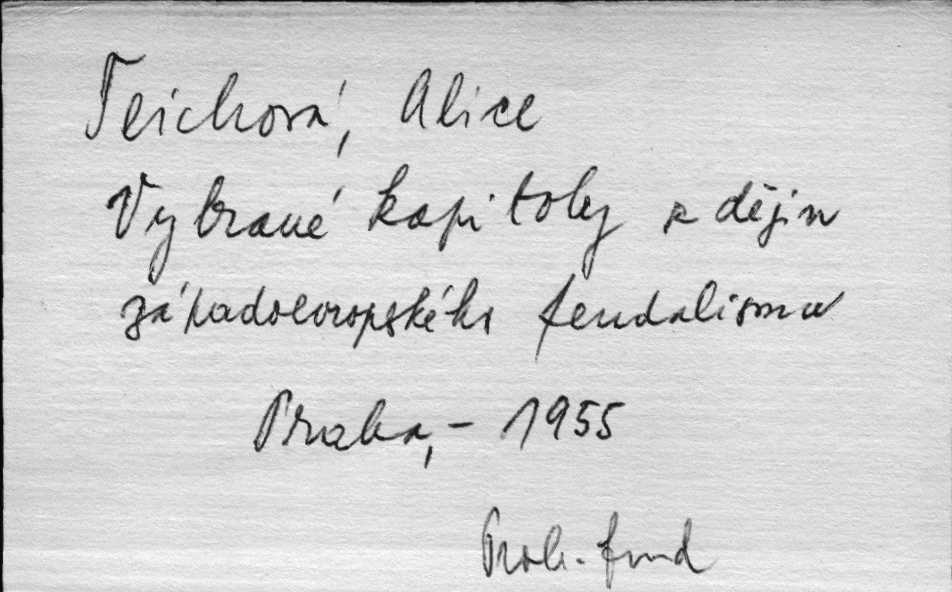 Teichová, Alice
Vybrané kapitoly z dějin
západoevropského feudalismu
Praha, - 1955
fond